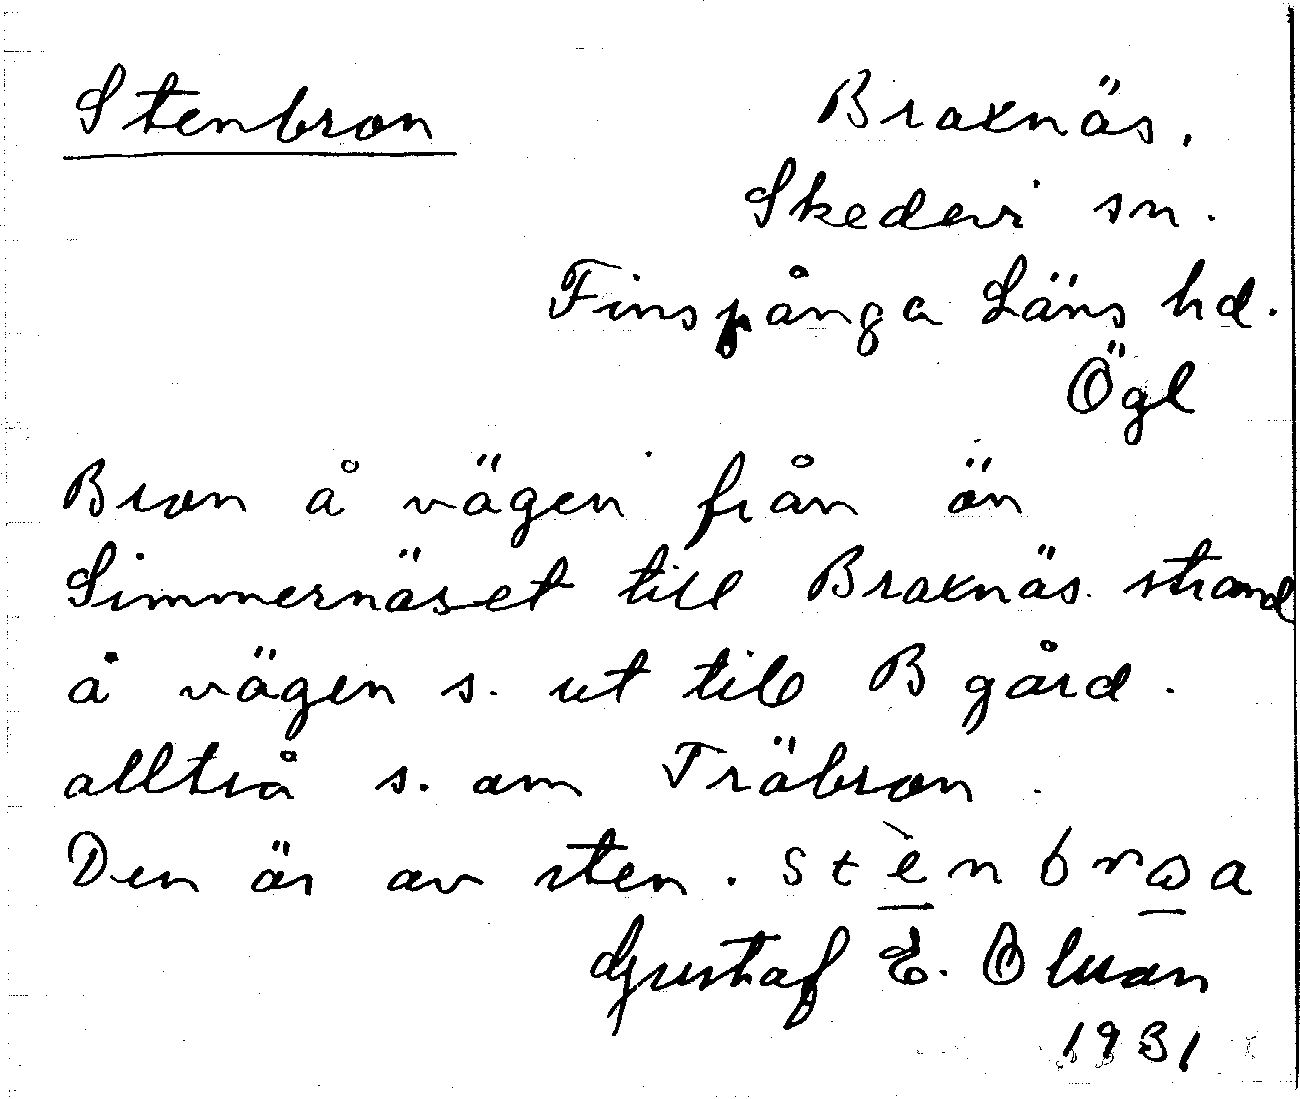 Stenbron
Braxnäs.
Skedevi sn.
Finspånga Läns hd.
Ögl
Bron å vägen från ön
Simmernäset till Braxnäs strand
å vägen s. ut till B gård.
alltså s. om Träbron.
Den är av sten. stènbrωa
Gustaf E. Olsson
1931